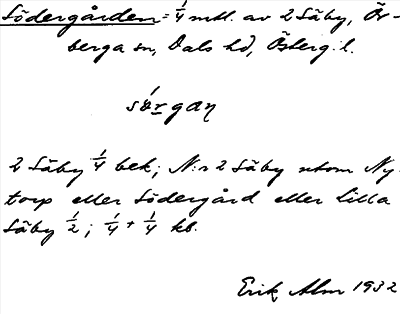 Södergården = 1/4 mtl. av 2 Säby, Ör-
berga sn, Dals hd, Österg. l.
2 Säby 1/4 bek; N:r 2 Säby utom Ny-
torp eller Södergård eller Lilla
Säby 1/2; 1/4 + 1/4 kb.
Erik Alm 1932